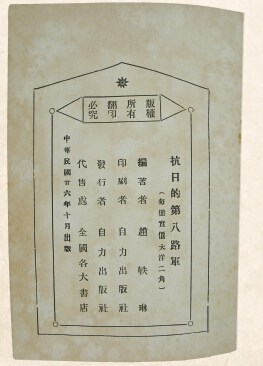 版權所有翻印必究
抗日的第八路軍
（每册實價大洋二角）
編著者　趙軼琳
印刷者　自力出版社
發行者　自力出版社
代售處　全國各大書店
中華民國廿六年十月出版